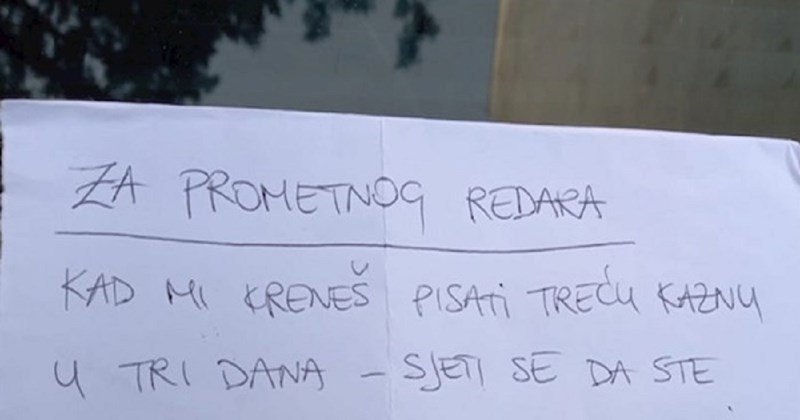 ZA PROMETNOG REDARA
KAD MI KRENEŠ PISATI TREĆU KAZNU
U TRI DANA - SJETI SE DA STE